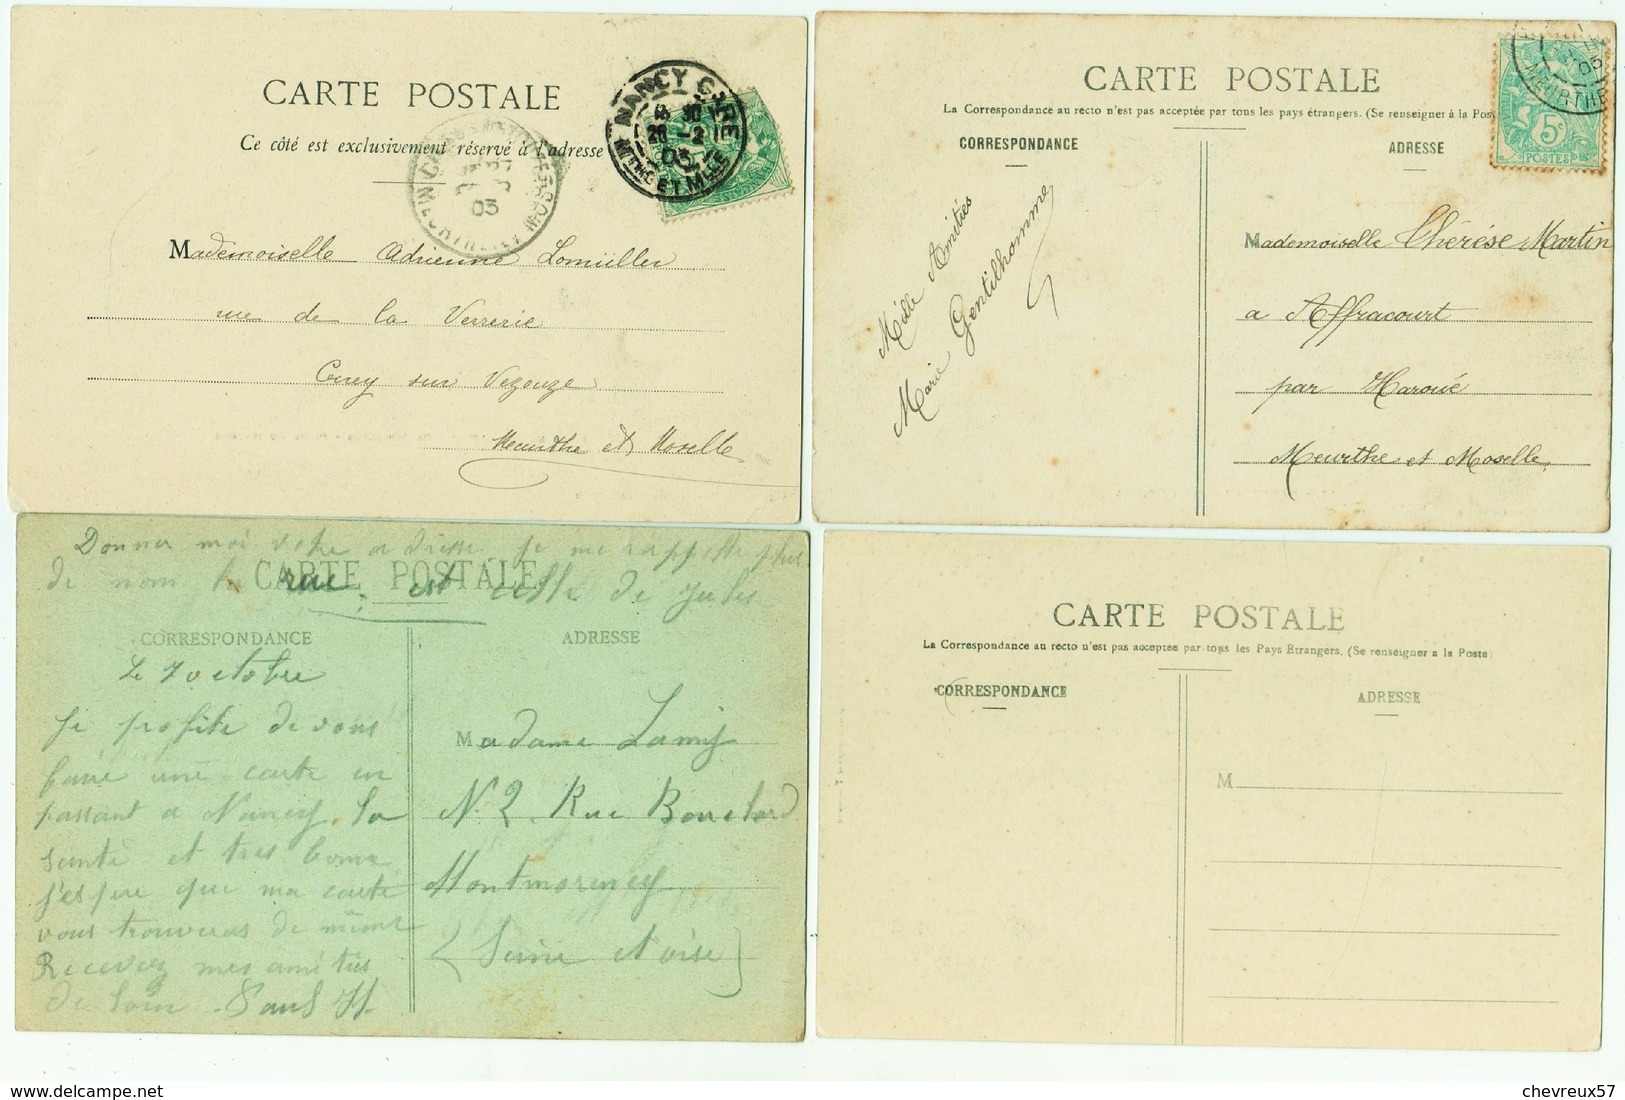 CARTE POSTALE
Ce côté est exclusivement réservé à l'adresse
NANCY GARE
MTHE ET MLLE
03
03
Mademoiselle Adrienne Lomüller
rue de la Verrerie
Cirey sur Vezouze
Meurthe et Moselle
CARTE POSTALE
La Correspondance au recto n'est pas acceptée par tons les pays étrangers. (Se renseigner à la Pos
CORRESPONDANCE
ADRESSE
5c
POSTES
MEURTHE
Mille Amitiés
Marie Gentilhomme
Mademoiselle Thérèse Martin
a Affracourt
par Haroué
Meurthe et Moselle
Donner moi votre adresse je me rappelle plus
de nom la rue, est celle de Jules
CARTE POSTALE
CORRESPONDANCE
ADRESSE
Le 7 octobre
Je profite de vous
faire une carte en
passant a Nancy. la
santé et tres bonne
j'espere que ma carte
vous trouveras de même
Recevez mes amitiés
de loin
Madame Lamy
N. 2 Rue Bouchard
Montmorency
(Seine et Oise)
CARTE POSTALE
La Correspondance au recto n'est pas acceptee par tous les Pays Étrangers. (Se renseigner a la Poste)
CORRESPONDANCE
ADRESSE
M
www.delcampe.net
chevreux57